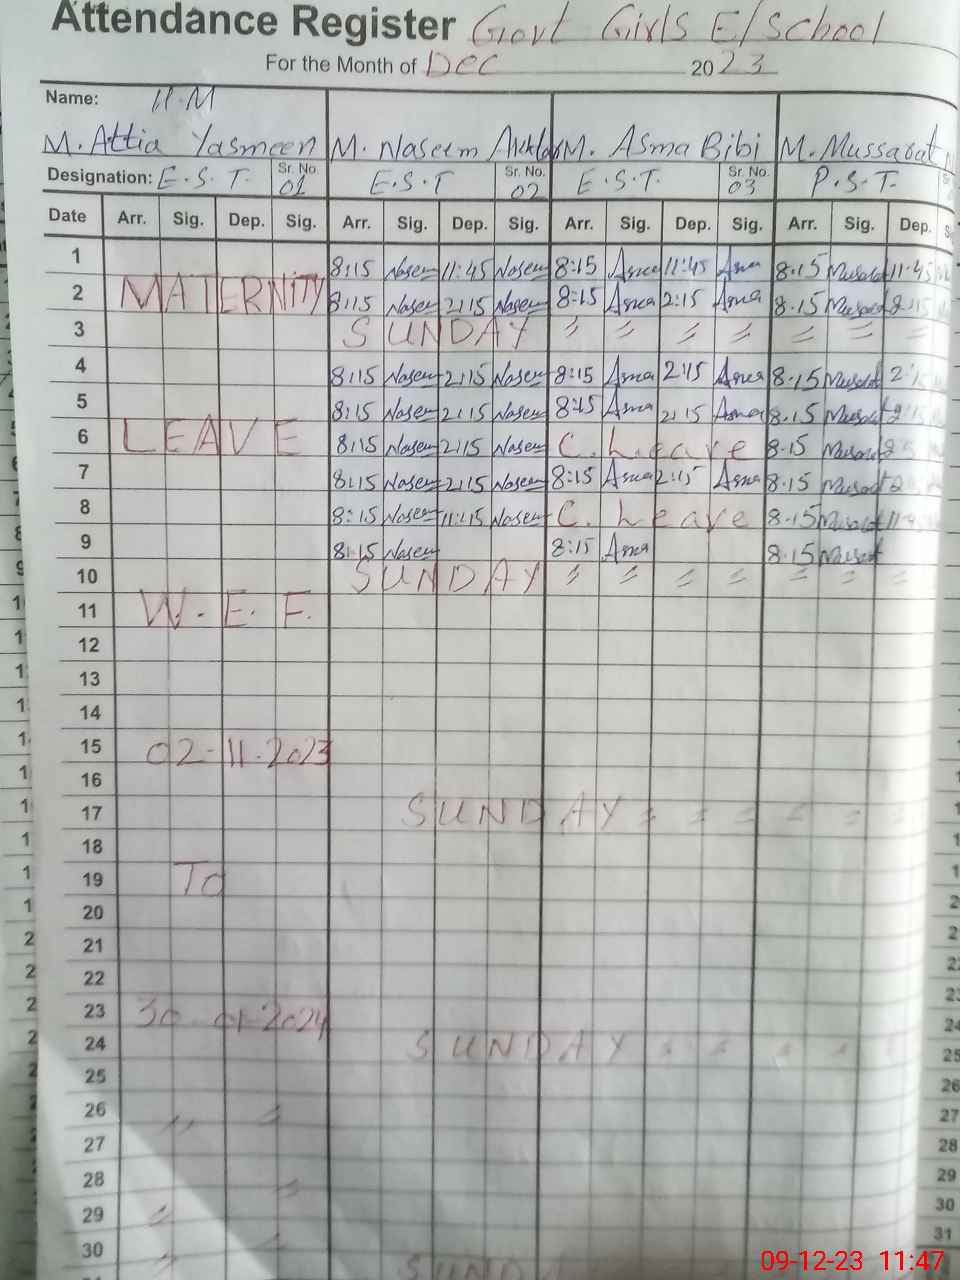 Attendance Register Govt Girls E/School
For the Month of Dec 2023
Name: H.M
M. Attia Yasmeen M. Naseem Akhtar M. Asma Bibi M. Mussarat
Designation: E.S.T. Sr. No. 01 E.S.T Sr. No. 02 E.S.T. Sr. No. 03 P.S.T.
Date Arr. Sig. Dep. Sig. Arr. Sig. Dep. Sig. Arr. Sig. Dep. Sig. Arr. Sig. Dep.
1 8:15 Naseem 11:45 Naseem 8:15 Asma 11:45 Asma 8.15 Musarat 11.45
2 MATERNITY 8:15 Naseem 2:15 Naseem 8:15 Asma 2:15 Asma 8.15 Musarat 2:15
3 SUNDAY 〃 〃 〃 〃 〃 〃 〃
4 8:15 Naseem 2:15 Naseem 8:15 Asma 2:15 Asma 8.15 Musarat
5 8:15 Naseem 2:15 Naseem 8:15 Asma 2:15 Asma 8.15 Musarat
6 LEAVE 8:15 Naseem 2:15 Naseem C. Leave 8.15 Musarat
7 8:15 Naseem 2:15 Naseem 8:15 Asma 2:15 Asma 8.15 Musarat
8 8:15 Naseem 11:45 Naseem C. Leave 8.15 Musarat
9 8:15 Naseem 8:15 Asma 8.15 Musarat
10 SUNDAY 〃 〃 〃 〃 〃 〃 〃
11 W.E.F.
12
13
14
15 02-11-2023
16
17 SUNDAY 〃 〃 〃 〃 〃 〃
18
19 To
20
21
22
23 30-01-2024
24 SUNDAY 〃 〃 〃 〃 〃
25
26 〃 〃
27
28 〃
29 〃
30 〃 〃
SUNDAY
09-12-23 11:47